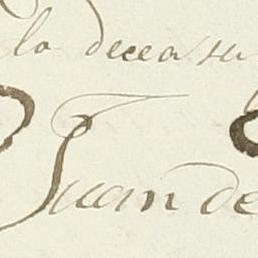 lo decea su
Juan de